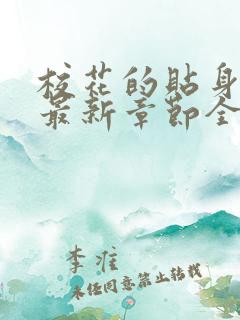 校花的贴身
最新章节全
李淮
未经同意禁止转载